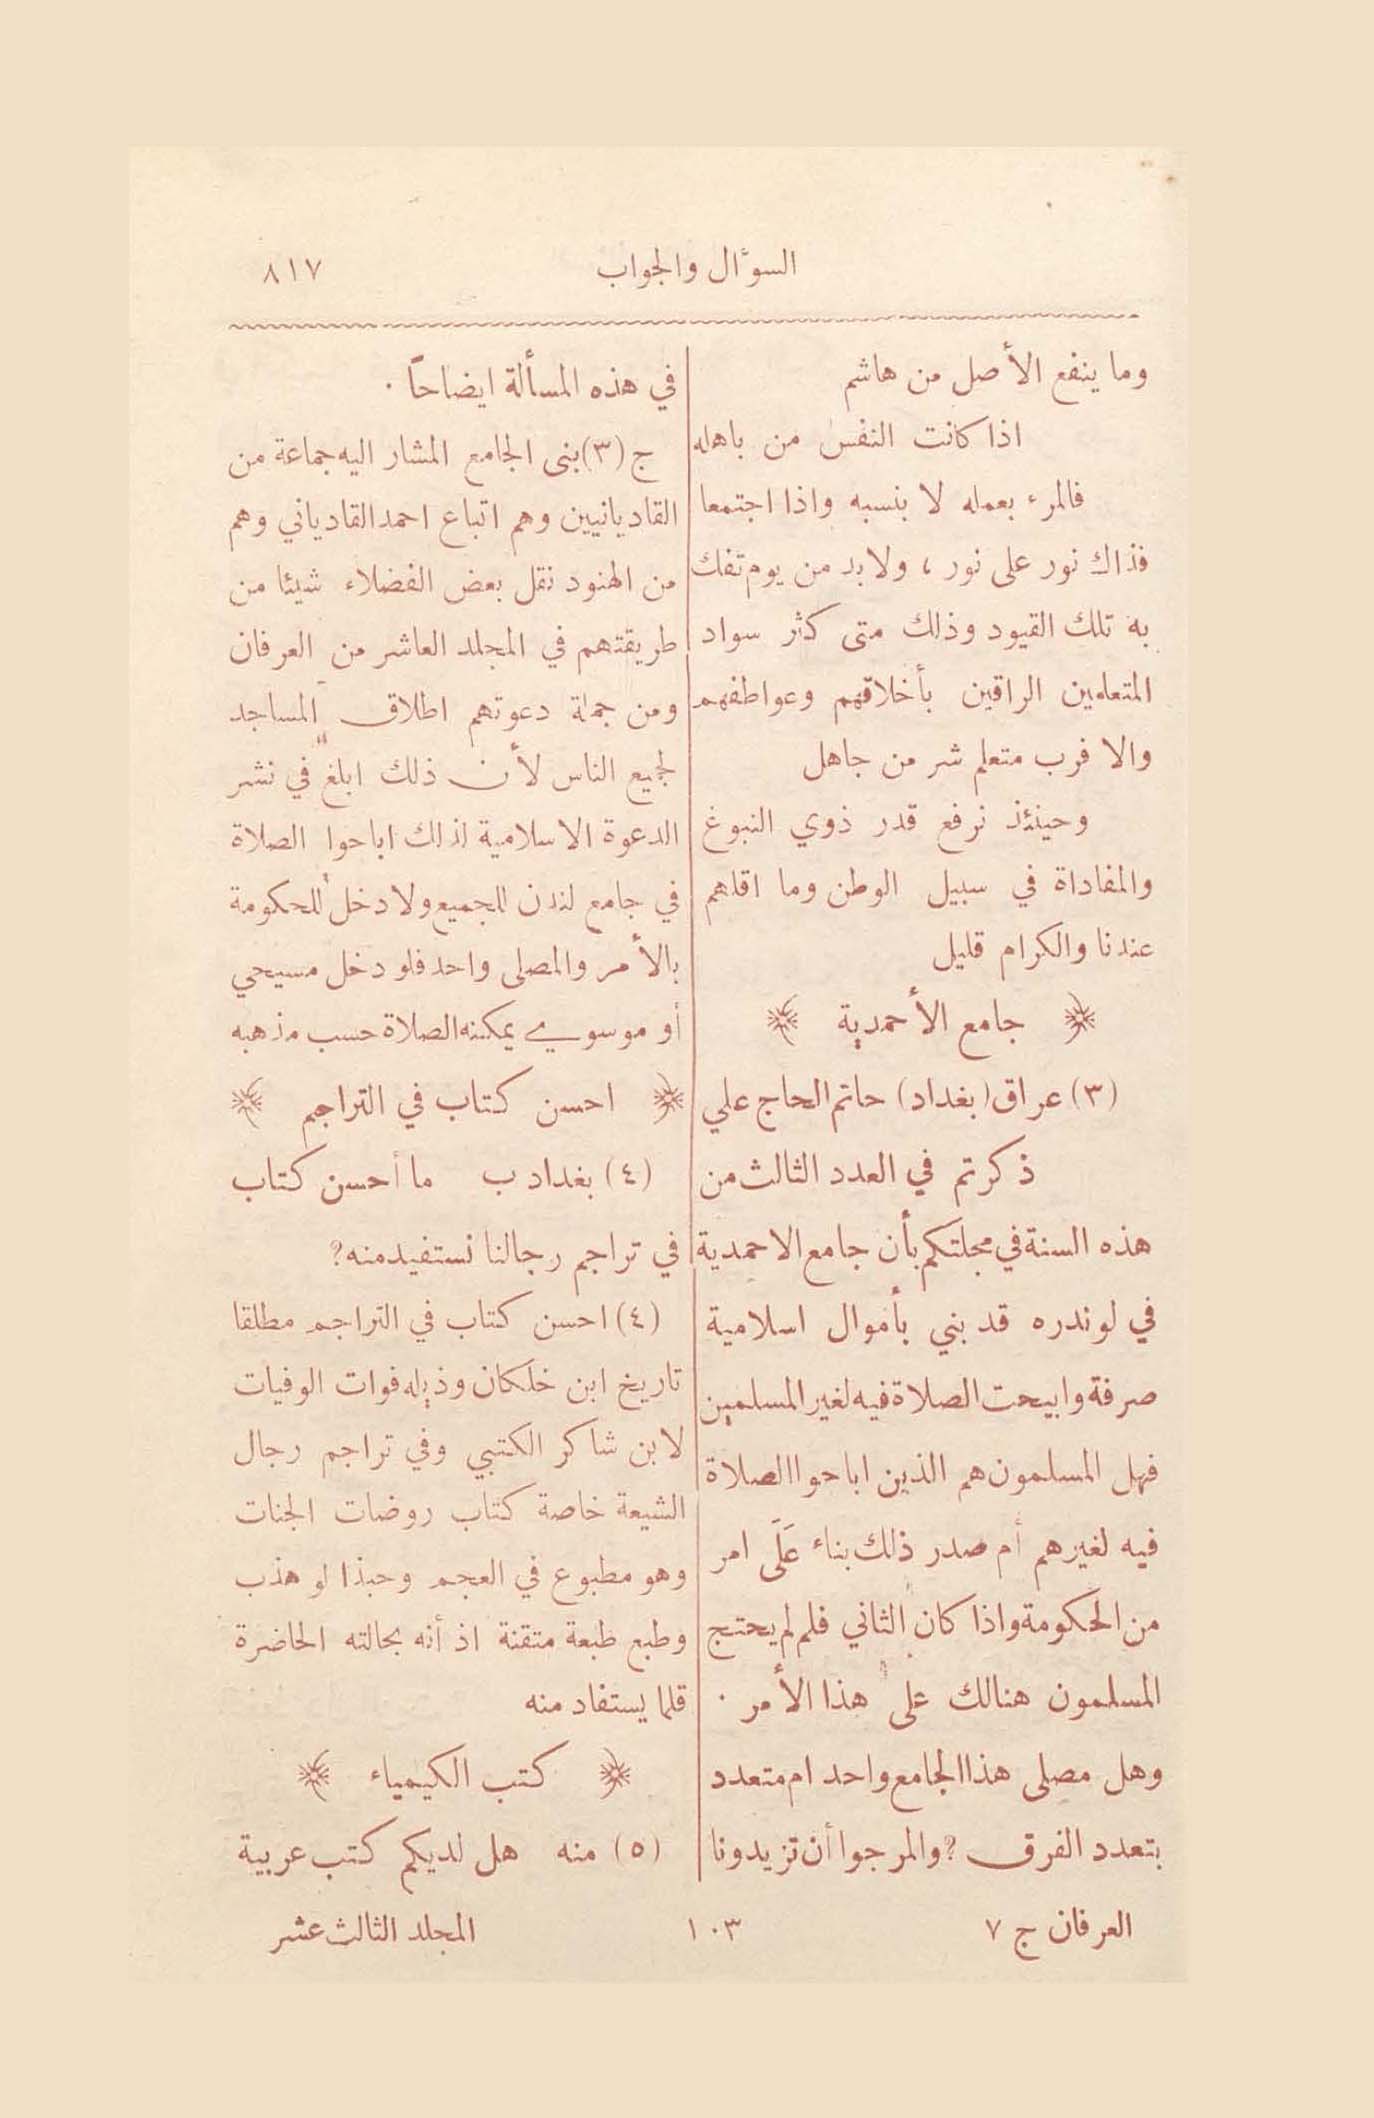 السوءال والجواب
٨١٧
وما ينفع الأصل من هاشم
اذا كانت النفس من باهله
فالمرء بعمله لا بنسبه واذا اجتمعا
فذاك نور على نور ، ولابد من يوم تفك
به تلك القيود وذلك متى كثر سواد
المتعلمين الراقين بأخلاقهم وعواطفهم
والا فرب متعلم شر من جاهل
وحينئذ نرفع قدر ذوي النبوغ
والمفاداة في سبيل الوطن وما اقلهم
عندنا والكرام قليل
﴿ جامع الأحمدية ﴾
(٣) عراق (بغداد) حاتم الحاج علي
ذكرتم في العدد الثالث من
هذه السنة في مجلتكم بأن جامع الاحمدية
في لوندره قد بني بأموال اسلامية
صرفة وابيحت الصلاة فيه لغير المسلمين
فهل المسلمون هم الذين اباحوا الصلاة
فيه لغيرهم أم صدر ذلك بناء عَلَى امر
من الحكومة واذا كان الثاني فلم لم يحتج
المسلمون هنالك على هذا الأمر ·
وهل مصلى هذا الجامع واحد ام متعدد
بتعدد الفرق ؟ والمرجوا أن تزيدونا
في هذه المسألة ايضاحاً ·
ج (٣) بنى الجامع المشار اليه جماعة من
القاديانيين وهم اتباع احمد القادياني وهم
من الهنود نقل بعض الفضلاء شيئا من
طريقتهم في المجلد العاشر من العرفان
ومن جملة دعوتهم اطلاق المساجد
لجميع الناس لأن ذلك ابلغ في نشر
الدعوة الاسلامية لذلك اباحوا الصلاة
في جامع لندن للجميع ولا دخل للحكومة
بالأمر والمصلى واحد فلو دخل مسيحي
أو موسوي يمكنه الصلاة حسب مذهبه
﴿ احسن كتاب في التراجم ﴾
(٤) بغداد ب ما أحسن كتاب
في تراجم رجالنا نستفيد منه ؟
(٤) احسن كتاب في التراجم مطلقا
تاريخ ابن خلكان وذيله فوات الوفيات
لابن شاكر الكتبي وفي تراجم رجال
الشيعة خاصة كتاب روضات الجنات
وهو مطبوع في العجم وحبذا لو هذب
وطبع طبعة متقنة اذ أنه بحالته الحاضرة
قلما يستفاد منه
﴿ كتب الكيمياء ﴾
(٥) منه هل لديكم كتب عربية
العرفان ج ٧
١٠٣
المجلد الثالث عشر